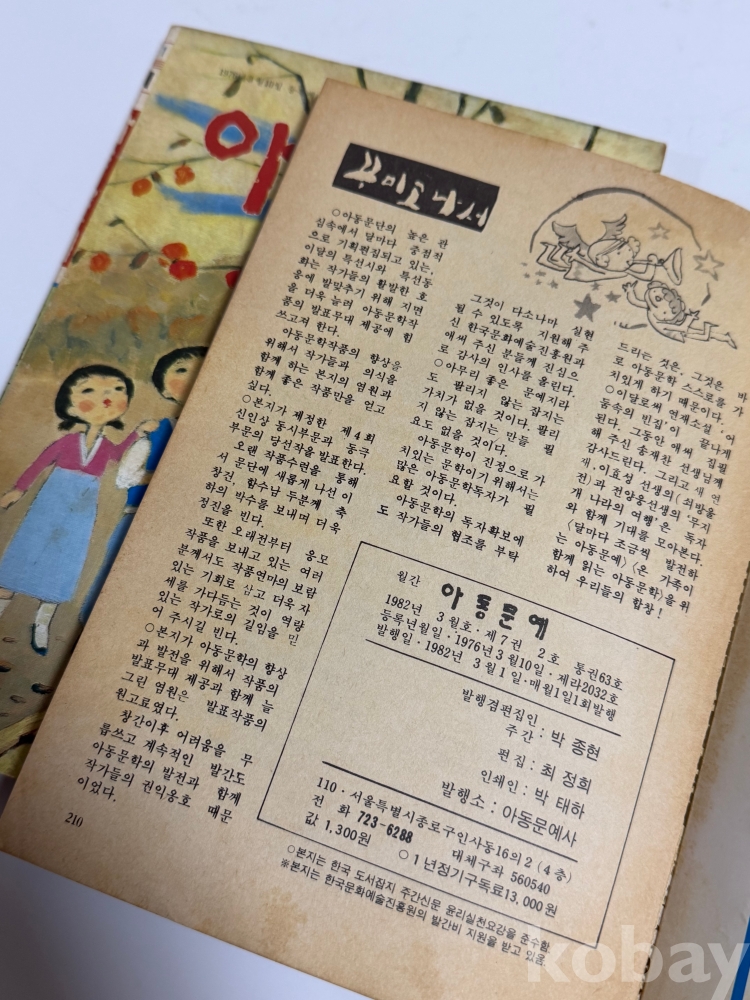 아
꾸미고 나서
○아동문단의 높은 관
심속에서 달마다 중점적
으로 기획편집되고 있는,
이달의 특선시와 특선동
화는 작가들의 활발한 호
응에 발맞추기 위해 지면
을 더욱 늘려 아동문학작
품의 발표무대 제공에 힘
쓰고저 한다.
아동문학작품의 향상을
위해서 작가들과 의식을
함께 하는 본지의 염원과
함께 좋은 작품만을 얻고
싶다.
○본지가 제정한 제4회
신인상 동시부문과 동극
부문의 당선작을 발표한다.
오랜 작품수련을 통해
서 문단에 새롭게 나선 이
창건, 함수남 두분께 축
하의 박수를 보내며 더욱
정진을 빈다.
또한 오래전부터 응모
작품을 보내고 있는 여러
분께서도 작품연마의 보람
있는 기회로 삼고 더욱 자
세를 가다듬는 것이 역량
있는 작가로의 길임을 믿
어 주시길 빈다.
○본지가 아동문학의 향상
과 발전을 위해서 작품의
발표무대 제공과 함께 늘
그린 염원은 발표작품의
원고료였다.
창간이후 어려움을 무
릅쓰고 계속적인 발간도
아동문학의 발전과 함께
작가들의 권익옹호 때문
이었다.
210
그것이 다소나마 실현
될 수 있도록 지원해 주
신 한국문화예술진흥원과
애써 주신 분들께 진심으
로 감사의 인사를 올린다.
○아무리 좋은 문예지라
도 팔리지 않는 잡지는
가치가 없을 것이다. 팔리
지 않는 잡지는 만들 필
요도 없을 것이다.
아동문학이 진정으로 가
치있는 문학이기 위해서는
많은 아동문학독자가 필
요할 것이다.
아동문학의 독자확보에
도 작가들의 협조를 부탁
드리는 것은, 그것은 바
로 아동문학 스스로를 가
치있게 하기 때문이다.
○이달로써 연재소설 '어
둠속의 빈집'이 끝나게
된다. 그동안 애써 집필
해 주신 송재찬 선생님께
감사드린다. 그리고 새 연
재·이효성 선생의 〈최방울
전〉과 전양웅선생의 '무지
개 나라의 여행'은 독자
와 함께 기대를 모아본다.
〈달마다 조금씩 발전하
는 아동문예〉 〈온 가족이
함께 읽는 아동문학〉을 위
하여 우리들의 합창!
월간 아동문예
1982년 3월호·제7권 2호 통권63호
등록년월일·1976년3월10일·제라2032호
발행일·1982년 3월1일·매월1일1회발행
발행겸편집인
주간 : 박 종현
편집 : 최 정희
인쇄인 : 박 태하
발행소 : 아동문예사
110·서울특별시종로구인사동16의2 (4층)
전 화 723-6288 대체구좌 560540
값 1,300원 ○1년정기구독료13,000원
○본지는 한국 도서잡지 주간신문 윤리실천요강을 준수함.
※본지는 한국문화예술진흥원의 발간비 지원을 받고 있음.
kobay